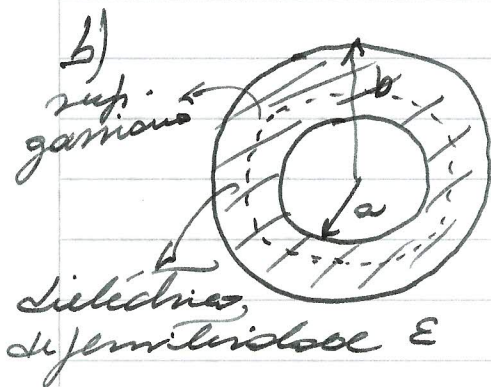 b)
sup.
gaussiana
b
a
dielétrico,
de permitividade ε